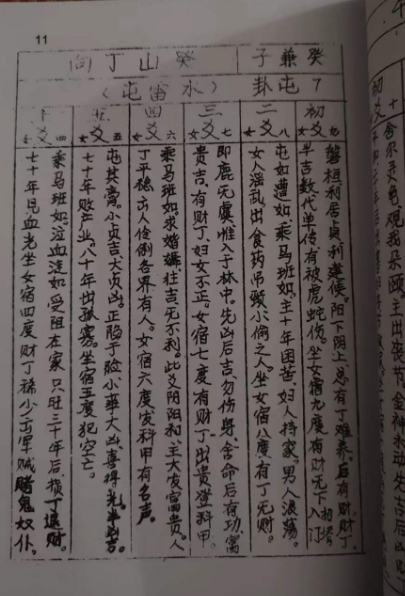 11
癸兼子
癸山丁向
7屯卦
（水雷屯）
初爻 女九
磐桓利居贞利建侯。阳下阴上总有丁难养。后有财。财丁
半吉数代单传有被虎蛇伤。坐女宿九度有财无下 入门
二爻 女八
屯如遭如。乘马班如。主十年困苦、妇人持家。男人浪荡。
女人淫乱出食药吊颈小偷之人。坐女宿八度有丁无财。
三爻 女七
即鹿无虞惟入于林中。先凶后吉。勿伤身、舍命后有功、富
贵吉。有财丁、妇女不正。女宿七度有财丁出贵登科甲。
四爻 女六
乘马班如求婚媾。往吉无不利。此爻阴阳和、主大发富贵。人
丁平稳、出人伶俐各界有人。女宿六度发科甲有名声
五爻 女五
屯其膏。小贞吉大贞凶。正险于脸小事大凶。喜得先半凶吉。
七十年败产业。八十年出孤寡。坐女宿五度犯空亡。
上爻 女四
乘马班如。泣血涟如。受阻在家 只旺三十年后、损丁退财。
七十年见血光坐女宿四度财丁稀少出军贼赌鬼奴仆。
初
十
舍尔灵龟观我朵颐主出丧节金神水动先吉后凶